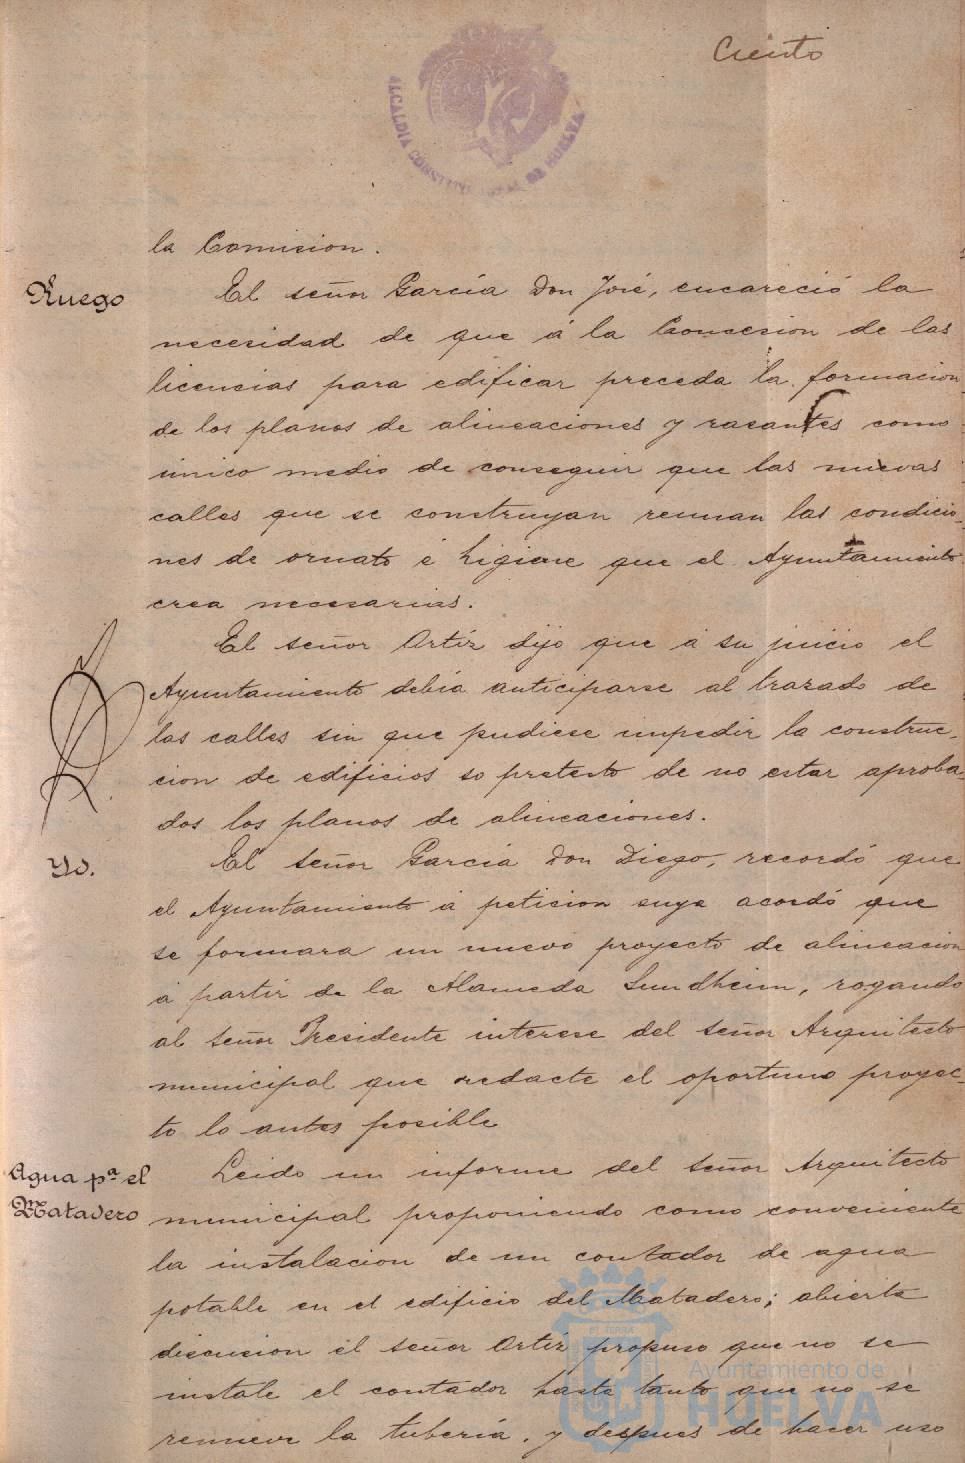 Ciento
ALCALDIA CONSTITUCIONAL DE HUELVA
la Comision.
Ruego
El señor García Don José, encareció la
necesidad de que á la Concesion de las
licencias para edificar preceda la formacion
de los planos de alineaciones y rasantes como
único medio de conseguir que las nuevas
calles que se construyan reunan las condicio-
nes de ornato é higiene que el Ayuntamiento
crea necesarias.
El señor Ortiz dijo que á su juicio el
Ayuntamiento debía anticiparse al trazado de
las calles sin que pudiese impedir la construc-
cion de edificios so pretesto de no estar aproba-
dos los planos de alineaciones.
Yd.
El señor García Don Diego, recordó que
el Ayuntamiento á peticion suya acordó que
se formara un nuevo proyecto de alineacion
á partir de la Alameda Sundheim, rogando
al señor Presidente interese del señor Arquitecto
municipal que redacte el oportuno proyec-
to lo antes posible
Agua pª el
Matadero
Leido un informe del señor Arquitecto
municipal proponiendo como conveniente
la instalacion de un contador de agua
potable en el edificio del Matadero; abierta
discusion el señor Ortiz propuso que no se
instale el contador hasta tanto que no se
renueve la tubería, y despues de hacer uso
Ayuntamiento de
HUELVA